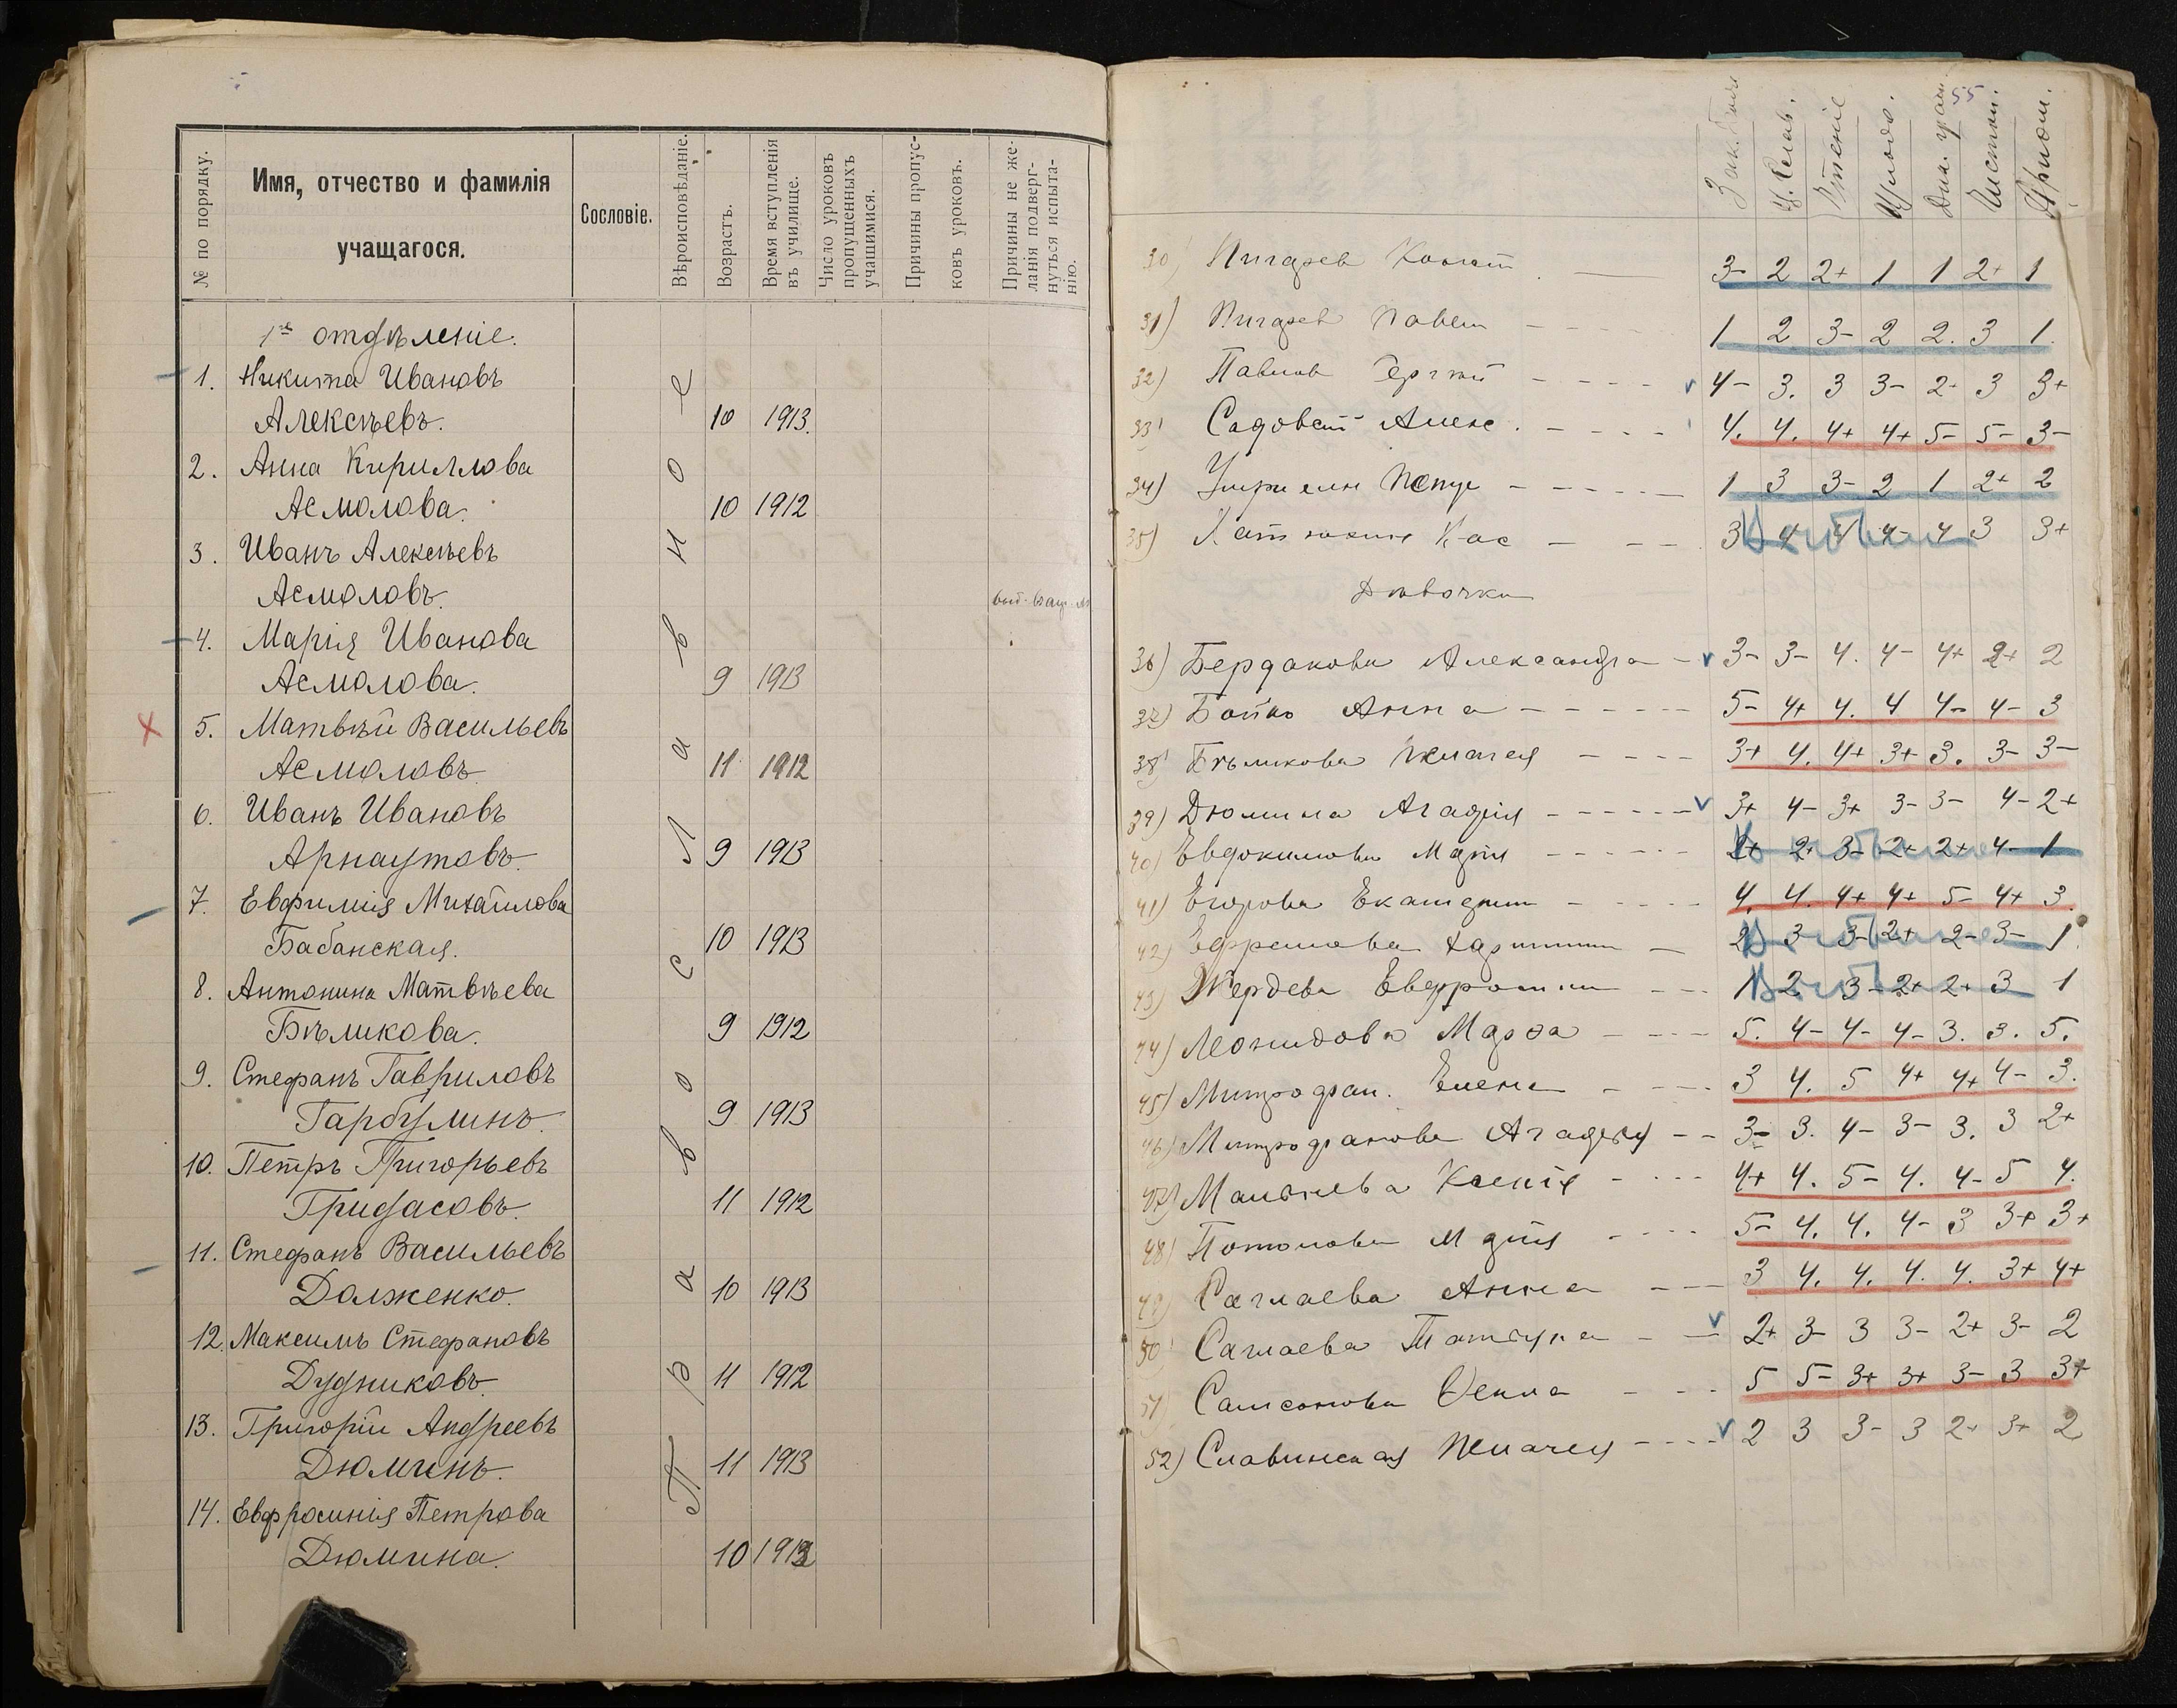 № по порядку.
Имя, отчество и фамилія
учащагося.
Сословіе.
Вѣроисповѣданіе.
Возрастъ.
Время вступленія
въ училище.
Число уроковъ
пропущенныхъ
учащимися.
Причины пропус-
ковъ уроковъ.
Причины не же-
ланія подверг-
нуться испыта-
нію.
1е отдѣленіе.
1. Никита Ивановъ
Алексѣевъ. 10 1913.
2. Анна Кириллова
Асмолова. 10 1912
3. Иванъ Алексѣевъ
Асмоловъ.
4. Марія Иванова
Асмолова. 9 1913
5. Матвѣй Васильевъ
Асмоловъ 11 1912
6. Иванъ Ивановъ
Арнаутовъ. 9 1913
7. Евфимія Михайлова
Бабанская. 10 1913
8. Антонина Матвѣева
Бѣликова. 9 1912
9. Стефанъ Гавриловъ
Гарбулинъ. 9 1913
10. Петръ Григорьевъ
Гридасовъ. 11 1912
11. Стефанъ Васильевъ
Долженко. 10 1913
12. Максимъ Стефановъ
Дудниковъ. 11 1912
13. Григорій Андреевъ
Дюминъ. 11 1913
14. Евфросинія Петрова
Дюмина. 10
Православное
55
Чтеніе
30) Пигарев 3- 2 2+ 1 1 2+ 1
31) Пигарев Павел 1 2 3- 2 2. 3 1.
32) Павлов v 4- 3. 3 3- 2+ 3 3+
33) 4. 4. 4+ 4+ 5- 5- 3-
34) 1 3 3- 2 1 2+ 2
35) 3 3 3+
Дѣвочки
36) Бердакова Александра v 3- 3- 4. 4- 4+ 2+ 2
37) Бойко Анна 5- 4+ 4. 4 4- 4- 3
38) Бѣликова Пелагея 3+ 4. 4+ 3+ 3. 3- 3-
39) Дюмина Агафія v 3+ 4- 3+ 3- 3- 4- 2+
40) Евдокимова Марія 2+ 2+ 3- 2+ 2+ 4- 1
41) Егорова Екатерина 4. 4. 4+ 4+ 5- 4+ 3.
42) Ефремова 2 3 3- 2+ 2- 3- 1.
43) Жердева Евфросинія 1 2. 3- 2+ 2+ 3 1
44) Леонидова Марѳа 5. 4- 4- 4- 3. 3. 5.
45) Митрофан. Елена 3 4. 5 4+ 4+ 4- 3.
46) Митрофанова Агафья 3- 3. 4- 3- 3. 3 2+
47) Матвѣева Ксенія 4+ 4. 5- 4. 4- 5 4.
48) Потолова Марія 5- 4. 4. 4- 3 3+ 3+
49) Саглаева Анна 3 4. 4. 4. 4. 3+ 4+
50) Саглаева Татьяна v 2+ 3- 3 3- 2+ 3- 2
51) Самсонова 5 5- 3+ 3+ 3- 3 3+
52) Славинская Пелагея v 2 3 3- 3 2+ 3+ 2